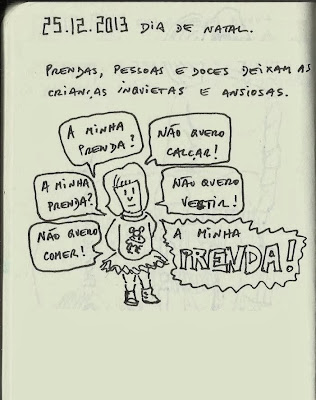 25.12.2013 DIA DE NATAL.
PRENDAS, PESSOAS E DOCES DEIXAM AS
CRIANÇAS INQUIETAS E ANSIOSAS.
A MINHA
PRENDA?
NÃO QUERO
CALÇAR!
A MINHA
PRENDA?
NÃO QUERO
VESTIR!
NÃO QUERO
COMER!
A MINHA
PRENDA!